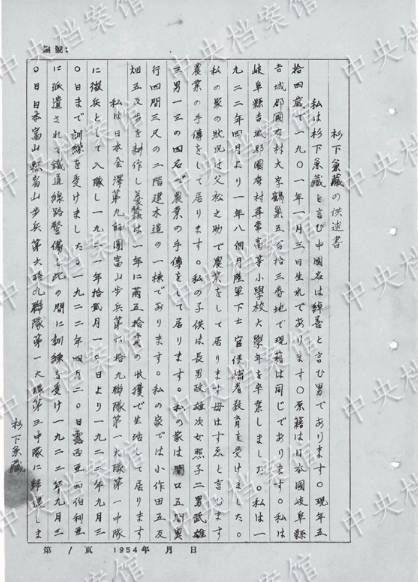 編號:
杉下兼蔵の供述書
私は杉下兼蔵と言ひ中國名は繹善と言ふ男であります。現年五
拾四歳で一九〇一年一月三日生れであります。原籍は日本國岐阜縣
吉城郡國府村大字鶴巣五百拾三番地で現籍は同じであります。私は
岐阜縣吉城郡國府村尋常高等小學校六學年を卒業しました。私は一
九二二年四月より一年八個月陸軍下士官候補者教育を受けました。
私の家の狀況は父松之助で農業をして居ります母はすゑと言ひます
農業の手傳をして居ります。私の子供は長男雄次女照子二男武雄
三男一三の四名で農業の手傳をして居ります。私の家は間口五間奥
行四間三尺の二階建木造の一棟であります。私の家では小作田五反
畑五反歩を耕作し養蠶は一年に繭五拾貫の收穫で生活して居ります
私は日本金澤第九師團富山歩兵第六拾九聯隊第一大隊第一中隊
に徴兵として入隊し一九二一年拾貳月一〇日より一九二二年九月三
〇日まで訓練を受けました。一九二二年四月二〇日露西亜西伯利亜
に派遣されて鐵道線路警備と此の間に訓練を受け一九二二年九月三
〇日日本富山縣富山歩兵第六拾九聯隊第一大隊第三中隊に歸還しま
杉下兼蔵
第 1 頁 1954年 月 日
中央档案馆